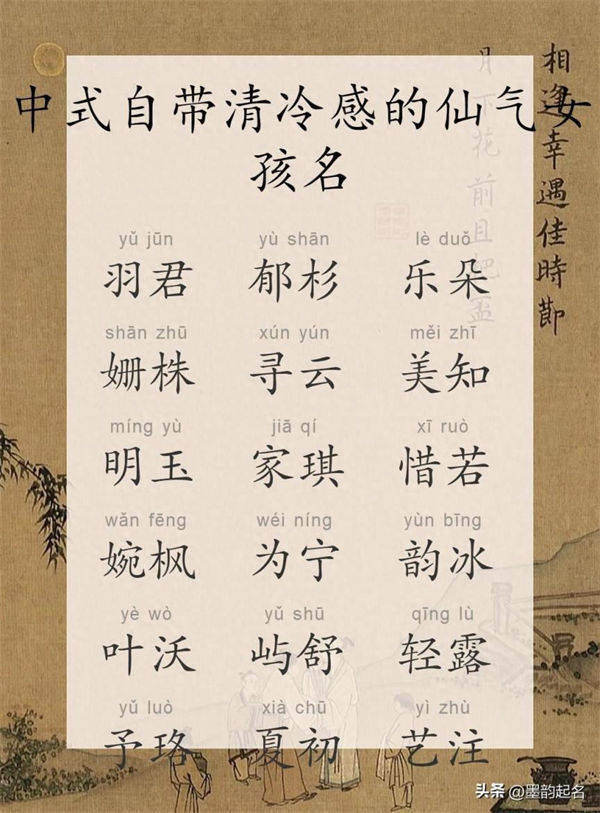 中式自带清冷感的仙气女
孩名
yǔ jūn yù shān lè duǒ
羽君 郁杉 乐朵
shān zhū xún yún měi zhī
姗株 寻云 美知
míng yù jiā qí xī ruò
明玉 家琪 惜若
wǎn fēng wéi níng yùn bīng
婉枫 为宁 韵冰
yè wò yǔ shū qīng lù
叶沃 屿舒 轻露
yǔ luò xià chū yì zhù
予珞 夏初 艺注
相逢幸遇佳時節
月下花前且把盃
头条 @墨韵起名